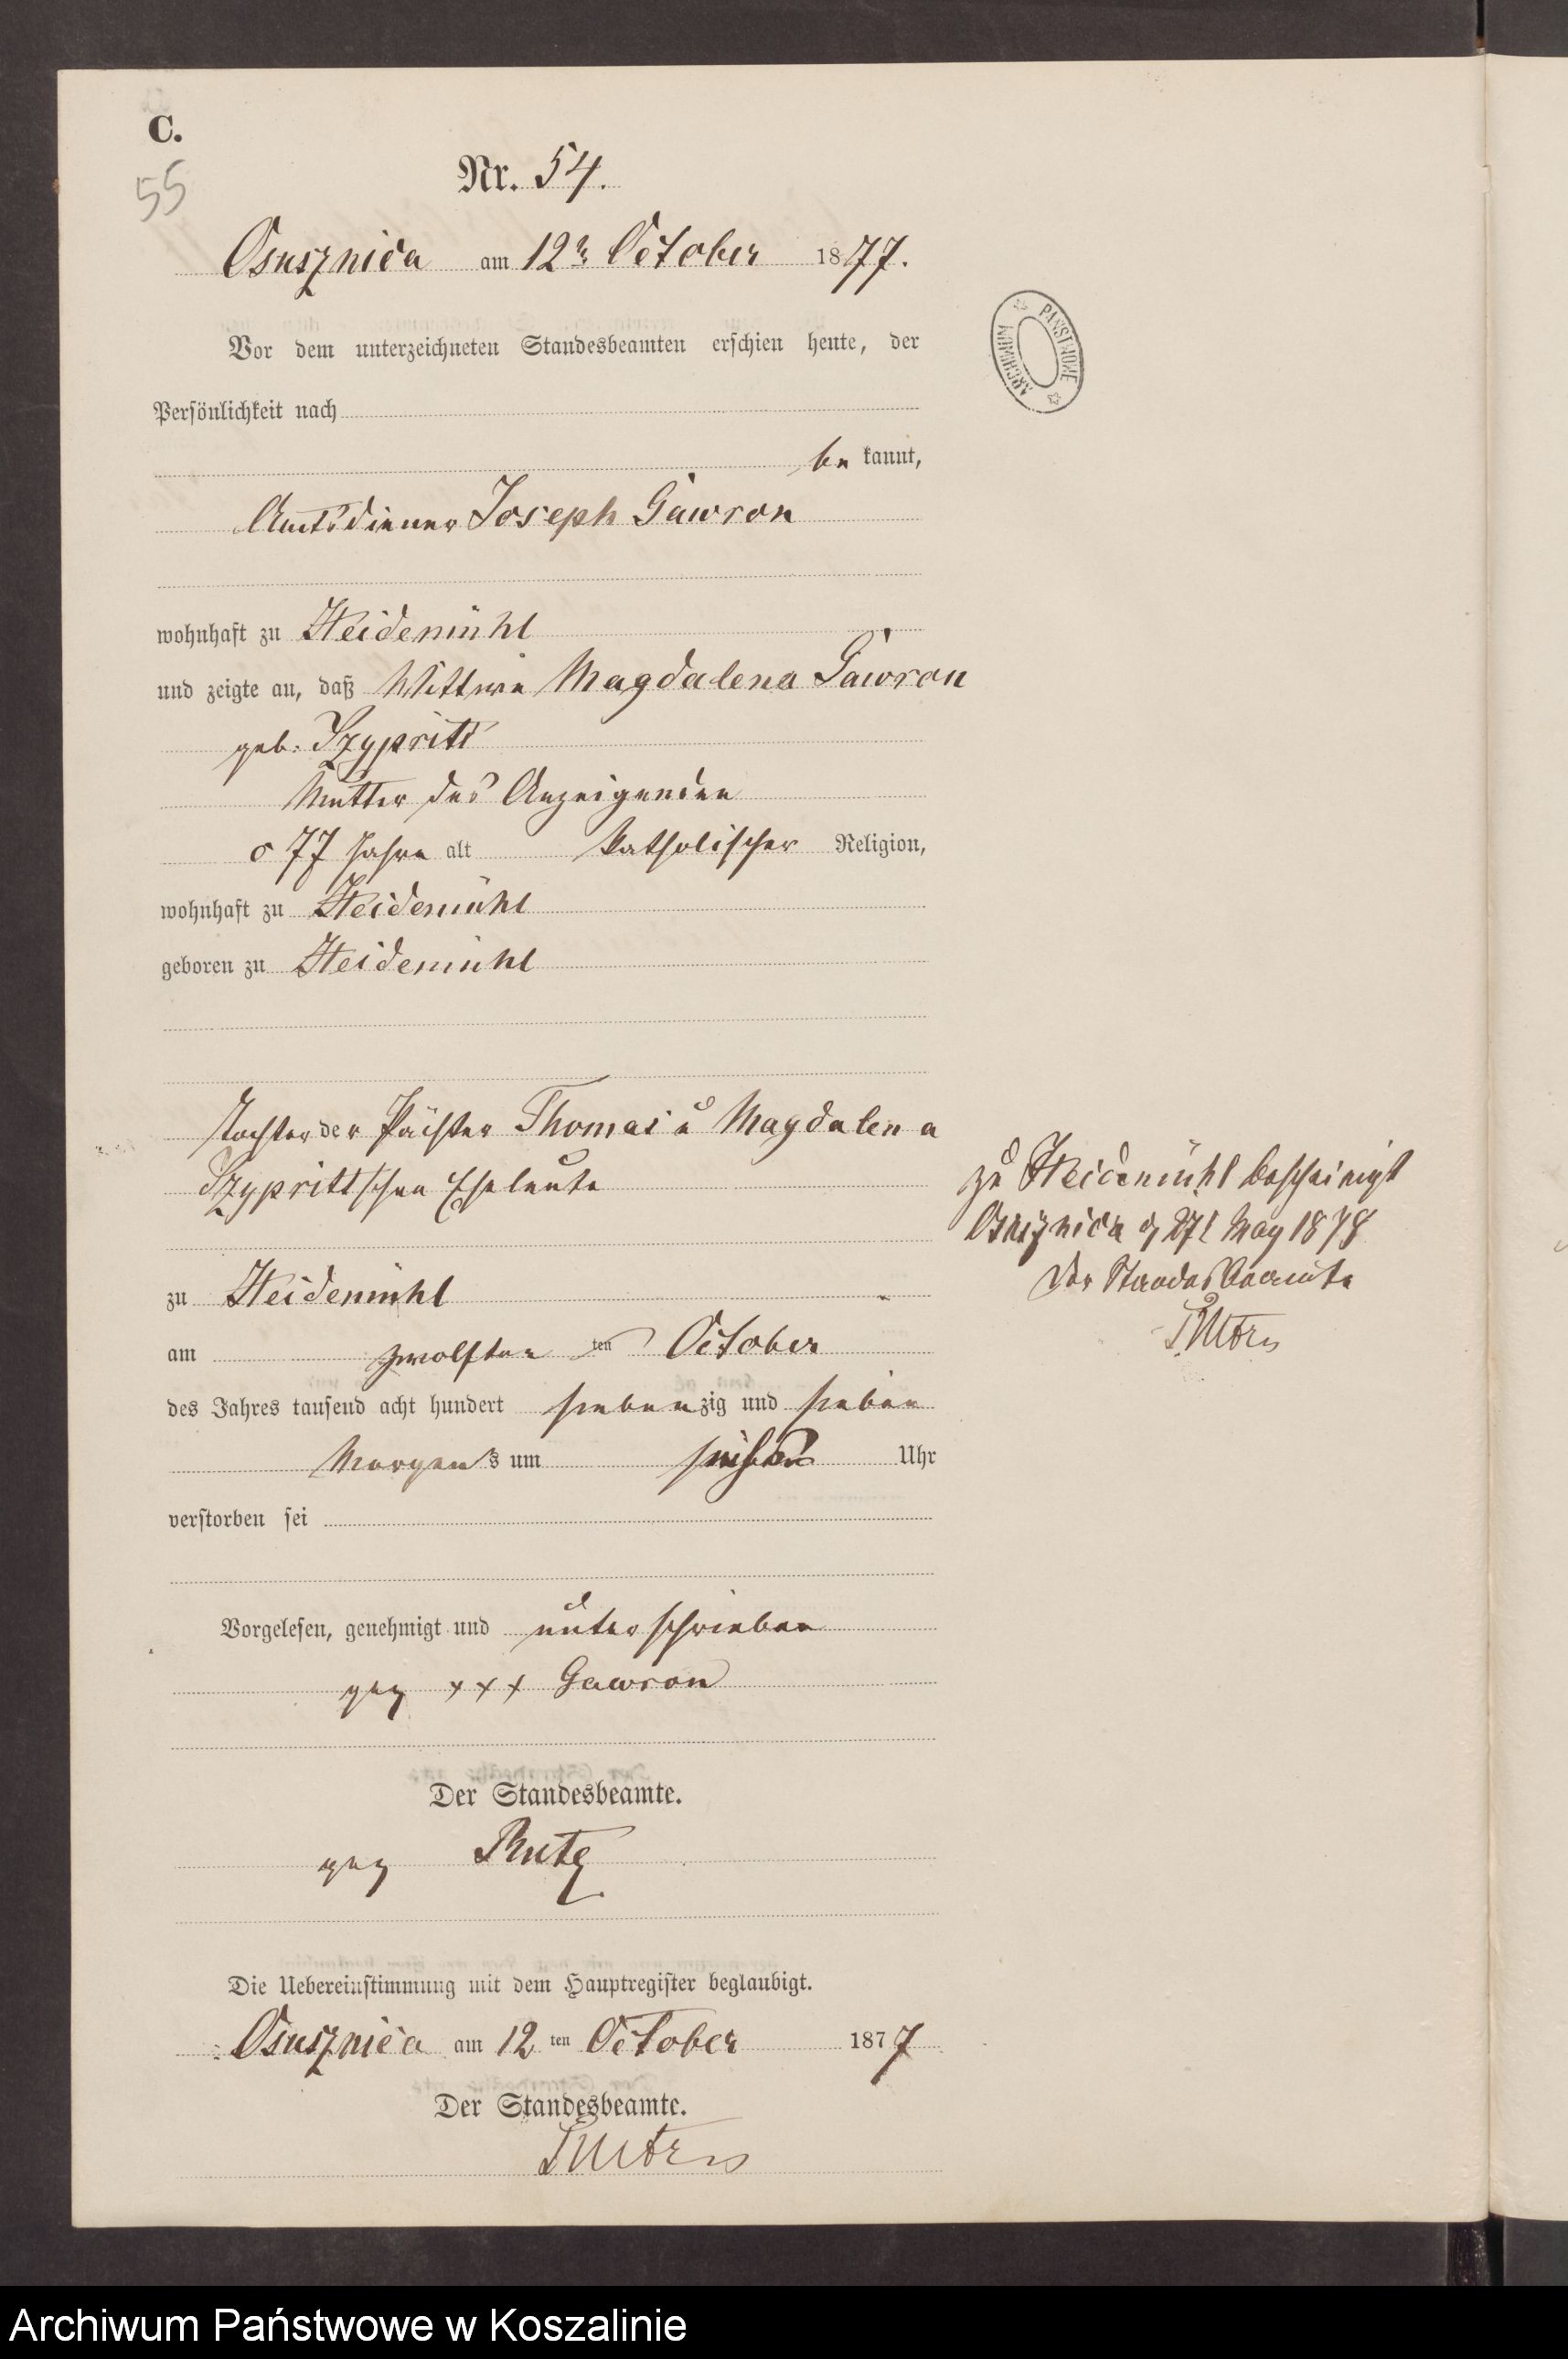 C.
55
Nr. 54.
Osusznica am 12n October 1877.
Vor dem unterzeichneten Standesbeamten erschien heute, der
Persönlichkeit nach
be kannt,
Amtsdiener Joseph Gawron
wohnhaft zu Heidemühl
und zeigte an, daß Wittwe Magdalena Gawron
geb: Szypritt
Mutter des Anzeigenden
77 Jahre alt katholischer Religion,
wohnhaft zu Heidemühl
geboren zu Heidemühl
Tochter der Pächter Thomas u Magdalena
Szyprittschen Eheleute
zu Heidemühl bescheinigt
Osusznica d 27t May 1878
Der Standesbeamte
zu Heidemühl
am zwölften ten October
des Jahres tausend acht hundert siebenzig und sieben
Morgens um Uhr
verstorben sei
Vorgelesen, genehmigt und unterschrieben
gez +++ Gawron
Der Standesbeamte.
gez
Die Uebereinstimmung mit dem Hauptregister beglaubigt.
Osusznica am 12 ten October 1877
Der Standesbeamte.
ARCHIWUM PAŃSTWOWE
Archiwum Państwowe w Koszalinie